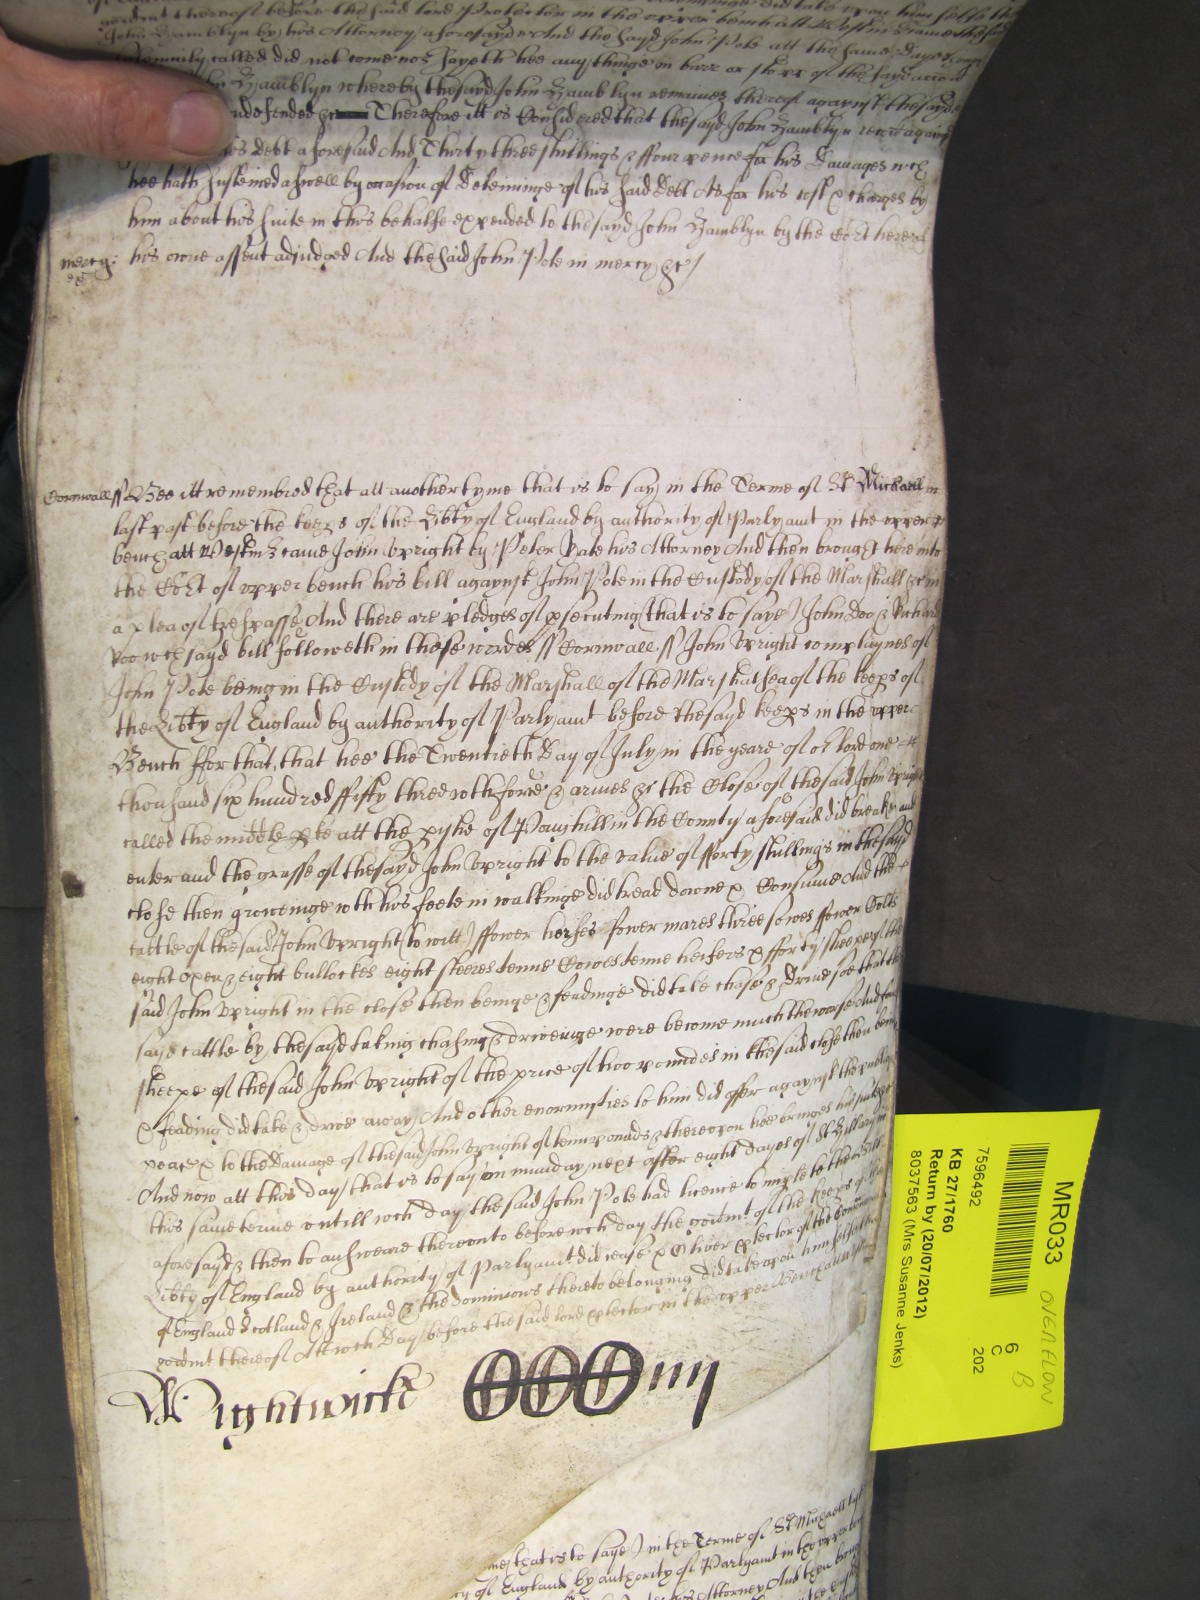 gov̄mt thereof before the said lord Protector in the upper bench att
John Hamblyn by his Attorney aforesayde And the sayd John Pole att the same day
solemnly called did not come nor sayeth hee any thinge in barr or stopp of the sayd accion
Hamblyn whereby the sayd John Hamblyn remaines thereof agaynst the sayd
undefended &c Therefore itt is Considered that the sayd John Hamblyn recov agaynst
his debt aforesaid And Thirty three shillings & ffour pence for his Damages wch
hee hath susteined aswell by occasion of deteininge of his said debt As for his cost & charges by
him about his suite in this behalfe expended to the sayd John Hamblyn by the Cort here of
mercy: his owne assent adjudged And the said John Pole in mercy &c/
Cornwall ss Bee itt remembred that att another tyme that is to say in the Terme of St Michaell
last past before the keeps of the Libty of England by authority of Parlyamt in the upper
bench att Westm̄ came John Upright by Peter Bale his Attorney And then brought here into
the Cort of upper bench his bill agaynst John Pole in the Custody of the Marshall &c in
a plea of trespasse And there are pledges of psecuting (that is to saye) John Doo & Richard
Roo wch sayd bill followeth in these wordes ss Cornwall ss John Upright complaynes of
John Pole being in the Custody of the Marshall of the Marshalsea of the keeps of
the Libty of England by authority of Parlyamt before the sayd keeps in the upper
Bench ffor that, that hee the Twentieth Day of July in the yeare of or lord one
thousand six hundred ffifty three with force & armes &c the Close of the said John Upright
called the middle att the pishe of Poughill in the County aforesaid did breake and
enter and the grasse of the sayd John Upright to the value of fforty shillings in the sayd
close then groweinge with his feete in walkinge did tread downe & Consume And the
cattle of the said John Upright (to witt) ffower horses ffower mares three sowes ffower Colts
eight Oxen & eight bullockes eight steeres tenne Cowes tenne heifers & fforty sheepe of the
said John Upright in the close then beinge & feadinge did take chase & drive soe that the
sayd cattle by the sayd taking chasing & driveinge were become much the worse And
sheepe of the said John Upright of the price of twoo poundes in the said close then being
& feading did take & drive away And other enormities to him did offer agaynst the publiq
peace & to the Damage of the said John Upright of tenn pounds & thereupon hee bringes his suite
And now att this day (that is to say) on munday next after eight dayes of St Hillary in
this same terme untill wch day the said John Pole had licence to imple to the Bill
aforesayd & then to answeare thereunto before wch day the govmt of the keeps of the
Libty of England by authority of Parlyamt did cease & Oliver ptector of the Comon
of England Scotland & Ireland & the Dominions thereto belonging did take upon himself the
govmt thereof Att wch Day before the said lord ptector in the upper Bench att
Wightwicke
(that is to saye) in the Terme of St Michaell last
of England by authority of Parlyamt in the upper
Attorney And then
MR033
OVERFLOW
6
C
B
202
7596492
KB 27/1760
Return by (20/07/2012)
8037563 (Mrs Susanne Jenks)